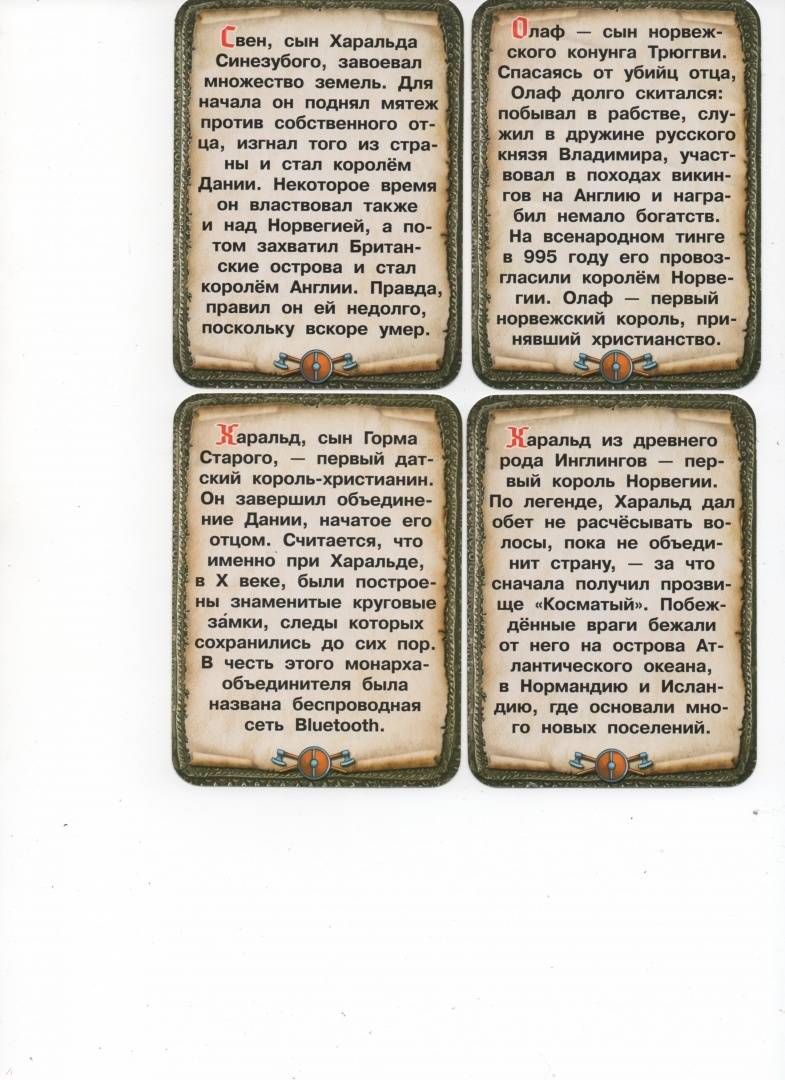 Свен, сын Харальда
Синезубого, завоевал
множество земель. Для
начала он поднял мятеж
против собственного от-
ца, изгнал того из стра-
ны и стал королём
Дании. Некоторое время
он властвовал также
и над Норвегией, а по-
том захватил Британ-
ские острова и стал
королём Англии. Правда,
правил он ей недолго,
поскольку вскоре умер.
Олаф — сын норвеж-
ского конунга Трюггви.
Спасаясь от убийц отца,
Олаф долго скитался:
побывал в рабстве, слу-
жил в дружине русского
князя Владимира, участ-
вовал в походах викин-
гов на Англию и награ-
бил немало богатств.
На всенародном тинге
в 995 году его провоз-
гласили королём Норве-
гии. Олаф — первый
норвежский король, при-
нявший христианство.
Харальд, сын Горма
Старого, — первый дат-
ский король-христианин.
Он завершил объедине-
ние Дании, начатое его
отцом. Считается, что
именно при Харальде,
в X веке, были построе-
ны знаменитые круговые
за́мки, следы которых
сохранились до сих пор.
В честь этого монарха-
объединителя была
названа беспроводная
сеть Bluetooth.
Харальд из древнего
рода Инглингов — пер-
вый король Норвегии.
По легенде, Харальд дал
обет не расчёсывать во-
лосы, пока не объеди-
нит страну, — за что
сначала получил прозви-
ще «Косматый». Побеж-
дённые враги бежали
от него на острова Ат-
лантического океана,
в Нормандию и Ислан-
дию, где основали мно-
го новых поселений.